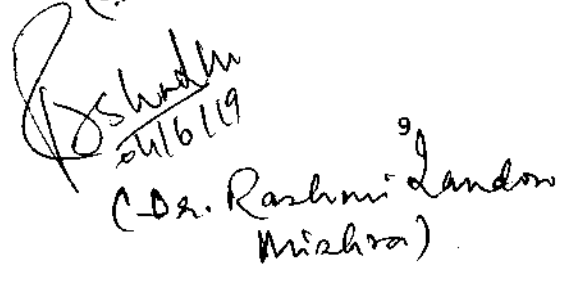 04/6/19
(Dr. Rashmi Tandon
Mishra)